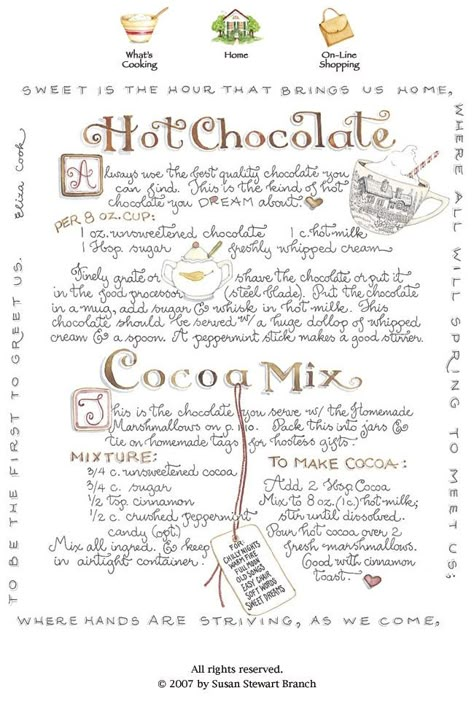 What's Cooking
Home
On-Line Shopping
SWEET IS THE HOUR THAT BRINGS US HOME,
WHERE ALL WILL SPRING TO MEET US;
WHERE HANDS ARE STRIVING, AS WE COME,
TO BE THE FIRST TO GREET US.
Eliza Cook
Hot Chocolate
Always use the best quality chocolate you
can find. This is the kind of hot
chocolate you DREAM about.
PER 8 OZ. CUP:
1 oz. unsweetened chocolate 1 c. hot milk
1 Tbsp. sugar freshly whipped cream
Finely grate or shave the chocolate or put it
in the food processor (steel blade). Put the chocolate
in a mug, add sugar & whisk in hot milk. This
chocolate should be served w/ a huge dollop of whipped
cream & a spoon. A peppermint stick makes a good stirrer.
Cocoa Mix
This is the chocolate you serve w/ the Homemade
Marshmallows on p. 110. Pack this into jars &
tie on homemade tags for hostess gifts.
MIXTURE:
3/4 c. unsweetened cocoa
3/4 c. sugar
1/2 tsp. cinnamon
1/2 c. crushed peppermint
candy (opt.)
Mix all ingred. & keep
in airtight container.
TO MAKE COCOA:
Add 2 Tbsp. Cocoa
Mix to 8 oz. (1 c.) hot milk;
stir until dissolved.
Pour hot cocoa over 2
fresh marshmallows.
Good with cinnamon
toast.
FOR:
CHILLY NIGHTS
WARM FIRE
FULL MOON
OLD SONGS
EASY CHAIR
SOFT WORDS
SWEET DREAMS
All rights reserved.
© 2007 by Susan Stewart Branch